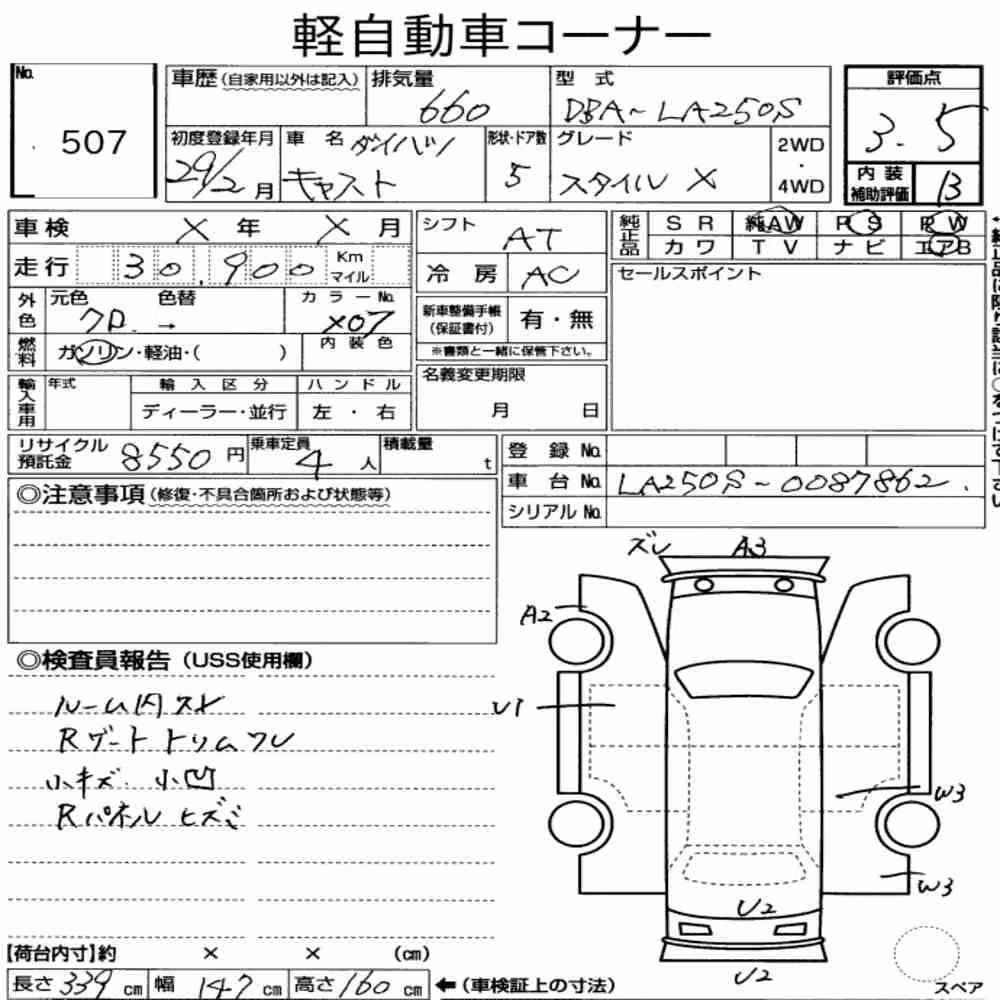 軽自動車コーナー
No. 507
車歴(自家用以外は記入) 排気量 660 型式 DBA-LA250S 評価点 3.5
初度登録年月 29/2月 車名 ダイハツ キャスト 形状・ドア数 5 グレード スタイル X 2WD・4WD 内装補助評価 B
車検 X年 X月 シフト AT 純正品 SR 純AW PS PW
走行 30,900 Km マイル 冷房 AC カワ TV ナビ エアB
外色 元色 クロ 色替 → カラーNo. X07 新車整備手帳(保証書付) 有・無 セールスポイント
燃料 ガソリン・軽油・( ) 内装色 ※書類と一緒に保管下さい。
輸入車用 年式 輸入区分 ハンドル 名義変更期限
ディーラー・並行 左・右 月 日
リサイクル預託金 8550円 乗車定員 4人 積載量 t 登録No.
車台No. LA250S-0087862
◎注意事項(修復・不具合箇所および状態等) シリアルNo.
ズレ A3
A2
◎検査員報告(USS使用欄)
ルーム内スレ
U1
Rゲートトリムスレ
小キズ 小凹
W3
Rパネル ヒズミ
W3
U2
【荷台内寸】約 × × (cm)
U2
長さ 339 cm 幅 147 cm 高さ 160 cm ←(車検証上の寸法) スペア